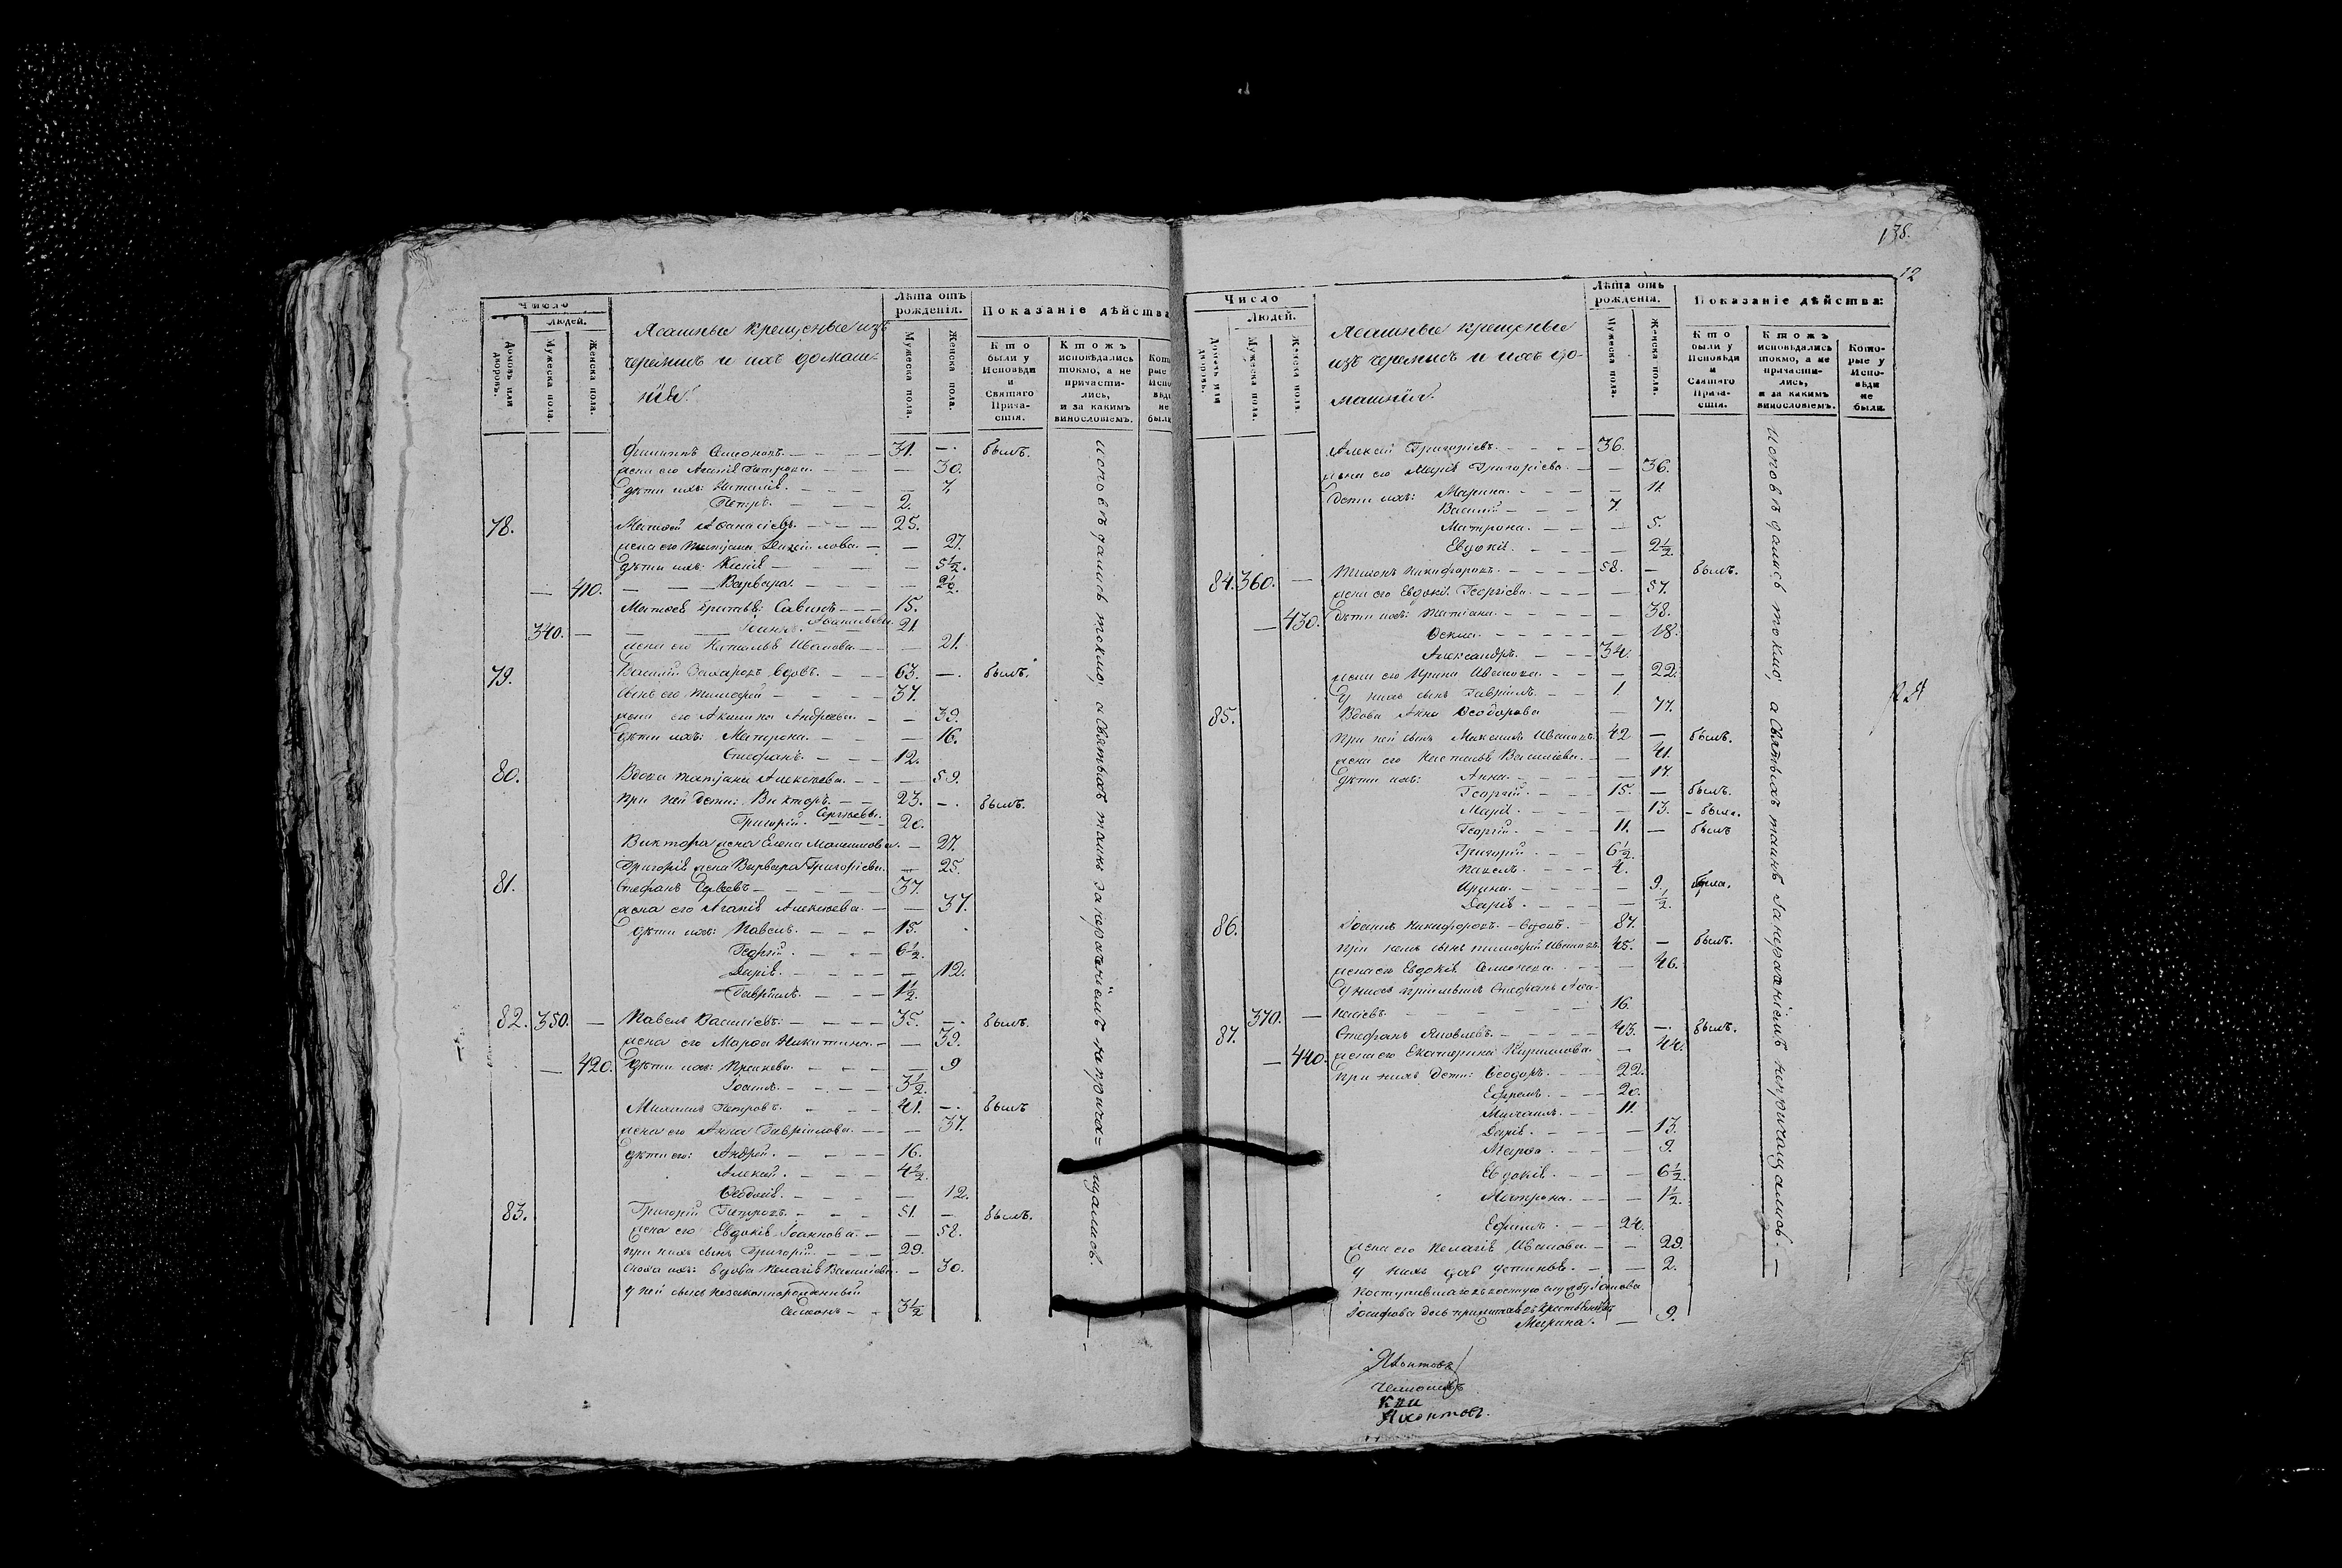 Число
Людей.
Домовъ или дворовъ.
Мужеска пола.
Женска пола.
Ясашные крещеные изъ
черемисъ и ихъ домаш-
нiи.
Лѣта отъ рожденiя.
Мужеска пола.
Женска пола.
Показанiе дѣйства
Кто были у Исповѣди и Святаго Прича-стiя.
Ктожъ исповѣдались токмо, а не причасти-лись, и за какимъ винословiемъ.
Филиппъ Семеновъ. 31. — былъ.
жена его Агапiя Петрова. — 30.
дѣти ихъ: Наталiя. — 7.
Петръ. 2.
78. Матвей Афанасiевъ. 25.
жена его Татiана Данилова. — 27.
дѣти ихъ: Ксенiя — 5½.
— 410. — Варвара. — 2½.
Матвея братья: Савинъ 15.
Iоаннъ. Афанасьевы. 21.
340. —
жена его Наталья Иванова. — 21.
79. Василiй Захаровъ вдовъ. 63. — былъ.
Сынъ его Тимофей 37.
жена его Акилина Андреева. — 39.
дѣти ихъ: Матрона. — 16.
Стефанъ. 12.
80. Вдова Татiана Алексеева. — 59.
при ней дети: Викторъ. 23. — былъ.
Григорiй. Сергѣевы. 20.
Виктора жена Елена — 27.
Григорiя жена Варвара Григорiева. — 25.
81. Стефанъ 37.
жена его Агапiя Алексеева. — 37.
дѣти ихъ: Павелъ. 15.
Георгiй. 6½.
Дарiя. — 12.
Гаврiилъ. 1½.
82. 350. — Павелъ Василiевъ. 35. — былъ.
жена его Марфа Никитина. — 39.
— 420. дѣти ихъ: — 9
Iоаннъ. 3½.
Михаилъ Петровъ. 41. — былъ
жена его Анна Гаврiилова. — 37.
дѣти его: Андрей. 16.
Алексей. 4½.
Феодосiя. — 12.
83. Григорiй Петровъ. 51. — былъ.
жена его Евдокiя Iоаннова. — 58.
при нихъ сынъ Григорiй. 29.
Сноха ихъ: вдова Пелагiя Василiева. — 30.
у ней сынъ незаконнорожденный
Симеонъ 3½
Исповѣдались токмо, а Святыхъ таинъ за нераченiемъ не прича-щались.
138.
12
Число
Людей.
Домовъ или дворовъ.
Мужеска пола.
Женска пола.
Ясашные крещеные
изъ черемисъ и ихъ до-
машнiи.
Лѣта отъ рожденiя.
Мужеска пола.
Женска пола.
Показанiе дѣйства:
Кто были у Исповѣди и Святаго Прича-стiя.
Ктожъ исповѣдались токмо, а не причасти-лись, и за какимъ винословiемъ.
Кото-рые у Испо-вѣди не были.
Алексей Григорiевъ. 36.
жена его Марiя Григорiева. — 36.
Дети ихъ: Марина. — 11.
Василiй 7
Матрона. — 5.
Евдокiя. — 2½.
84. 360. — Никифоровъ. 58. — былъ.
жена его Евдокiя Георгiева. — 57.
— 430. дѣти ихъ: Татiана. — 38.
Фекла. — 18.
Александръ. 34.
жена его Ирина Иванова. — 22.
у нихъ сынъ Гаврiилъ. 1.
85. Вдова Анна Феодорова — 77.
при ней сынъ Максимъ Ивановъ. 42 — былъ.
жена его Настасья Василiева. — 41.
дѣти ихъ: Анна. — 17.
Георгiй. 15. — былъ.
Марiя. — 13. — была.
Георгiй. 11. — былъ
Григорiй. 6½.
Павелъ. 4.
Ирина. — 9. была.
Дарiя. — ½.
86. Iоаннъ Никифоровъ. — вдовъ. 87.
при немъ сынъ Тимофей Ивановъ. 45. — былъ.
жена его Евдокiя Семенова. — 46.
у нихъ прiемышъ Стефанъ Афа-
насiевъ. 16.
370. —
87. Стефанъ Яковлевъ. 43. — былъ.
— 440. жена его Екатерина Кириллова. — 44.
при нихъ дети: Феодоръ. 22.
Ефремъ. 20.
Михаилъ. 11.
Дарiя. — 13.
Марфа. — 9.
Евдокiя. — 6½.
Матрона. — 1½.
Ефимъ. 24.
жена его Пелагiя Иванова. — 29.
у нихъ дочь Устинья. — 2.
Поступившаго въ военную службу Iоанова
Марина. — 9.
Исповѣдались токмо, а Святыхъ таинъ за нераченiемъ не причащались. —